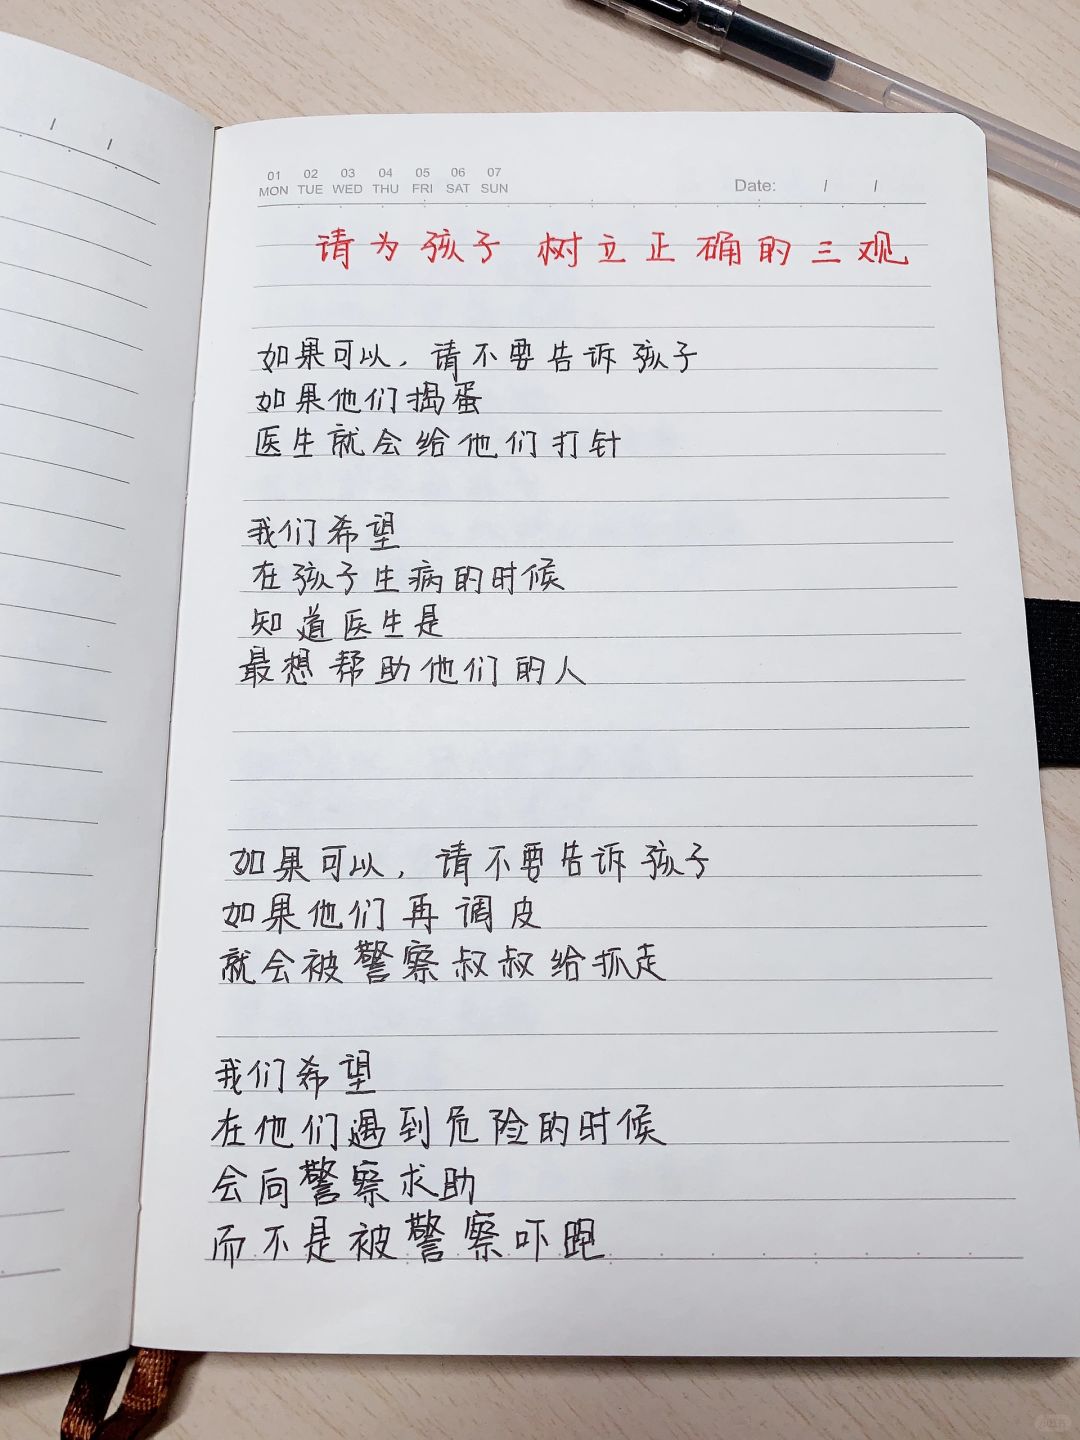 01 02 03 04 05 06 07
MON TUE WED THU FRI SAT SUN
Date: / /
请为孩子 树立正确的三观
如果可以，请不要告诉孩子
如果他们捣蛋
医生就会给他们打针
我们希望
在孩子生病的时候
知道医生是
最想帮助他们的人
如果可以，请不要告诉孩子
如果他们再调皮
就会被警察叔叔给抓走
我们希望
在他们遇到危险的时候
会向警察求助
而不是被警察吓跑